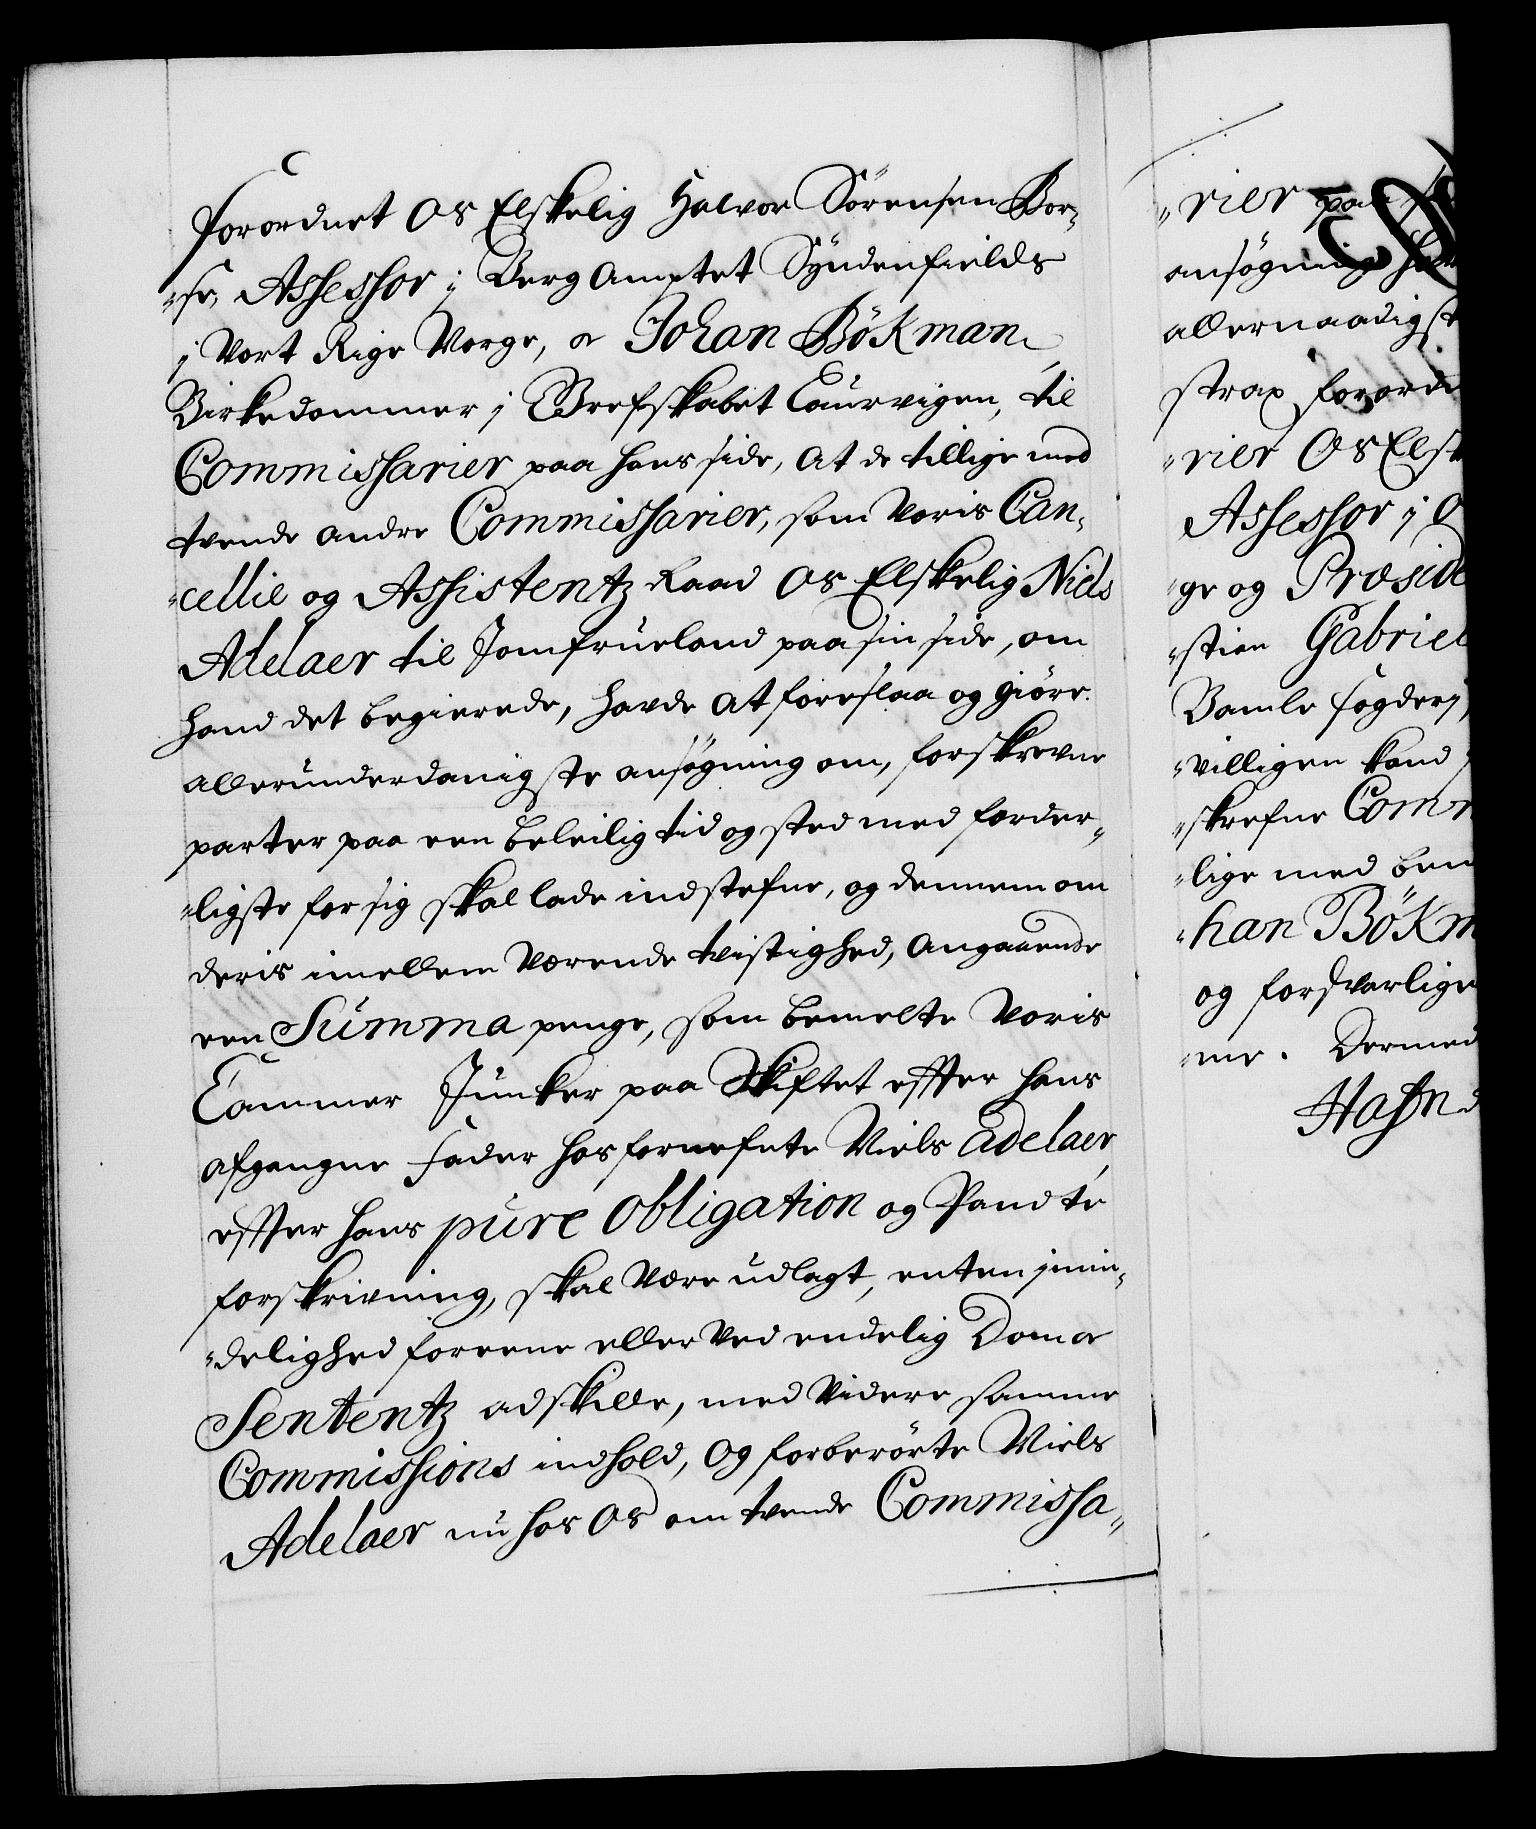 forordnet Os Elskelig Halvor Sörensen Bor-
"se, Assessor i Berg Amptet Syndenfields
i Vort Rige Norge, og Johan Bökman,
Birkedommer i Grefskabet Laurvigen, til
Commissarier paa hans side, at de tillige med
tvende andre Commissarier, som Voris Can-
"cellie og Assistentz Raad Os Elskelig Niels
Adelaer til Jomfrueland paa sin side, om
hand det begierede, havde at foreslaa og giöre
allerunderdanigste ansögning om, forskrevne
parter paa een beleilig tid og sted med forder-
"ligste for sig skal lade indstefne, og dennem om
deris imellem Værende tvistighed, angaaende
een Summa penge, som bemelte Voris
Cammer Junker paa Skiftet effter hans
afgangne Fader hos fornefnte Niels Adelaer
effter hans pure Obligation og Pandte
forskrivning, skal Være udlagt, enten i min-
"delighed foreene eller Ved endelig Dom og
Sententz adskille, med Videre samme
Commissions indhold, Og forberörte Niels
Adelaer nu hos Os om tvende Commissa-
"rier paa
ansögning
allernaadigst
strax forord
"rier Os Elsk
Assessor i O
"ge og Præside
"stian Gabriel
Bamle fogderi,
"villigen kand
"skrefne Comm
"lige med bem
"han Bökm
og forsvarlige
"me. Dermed
Hafn d